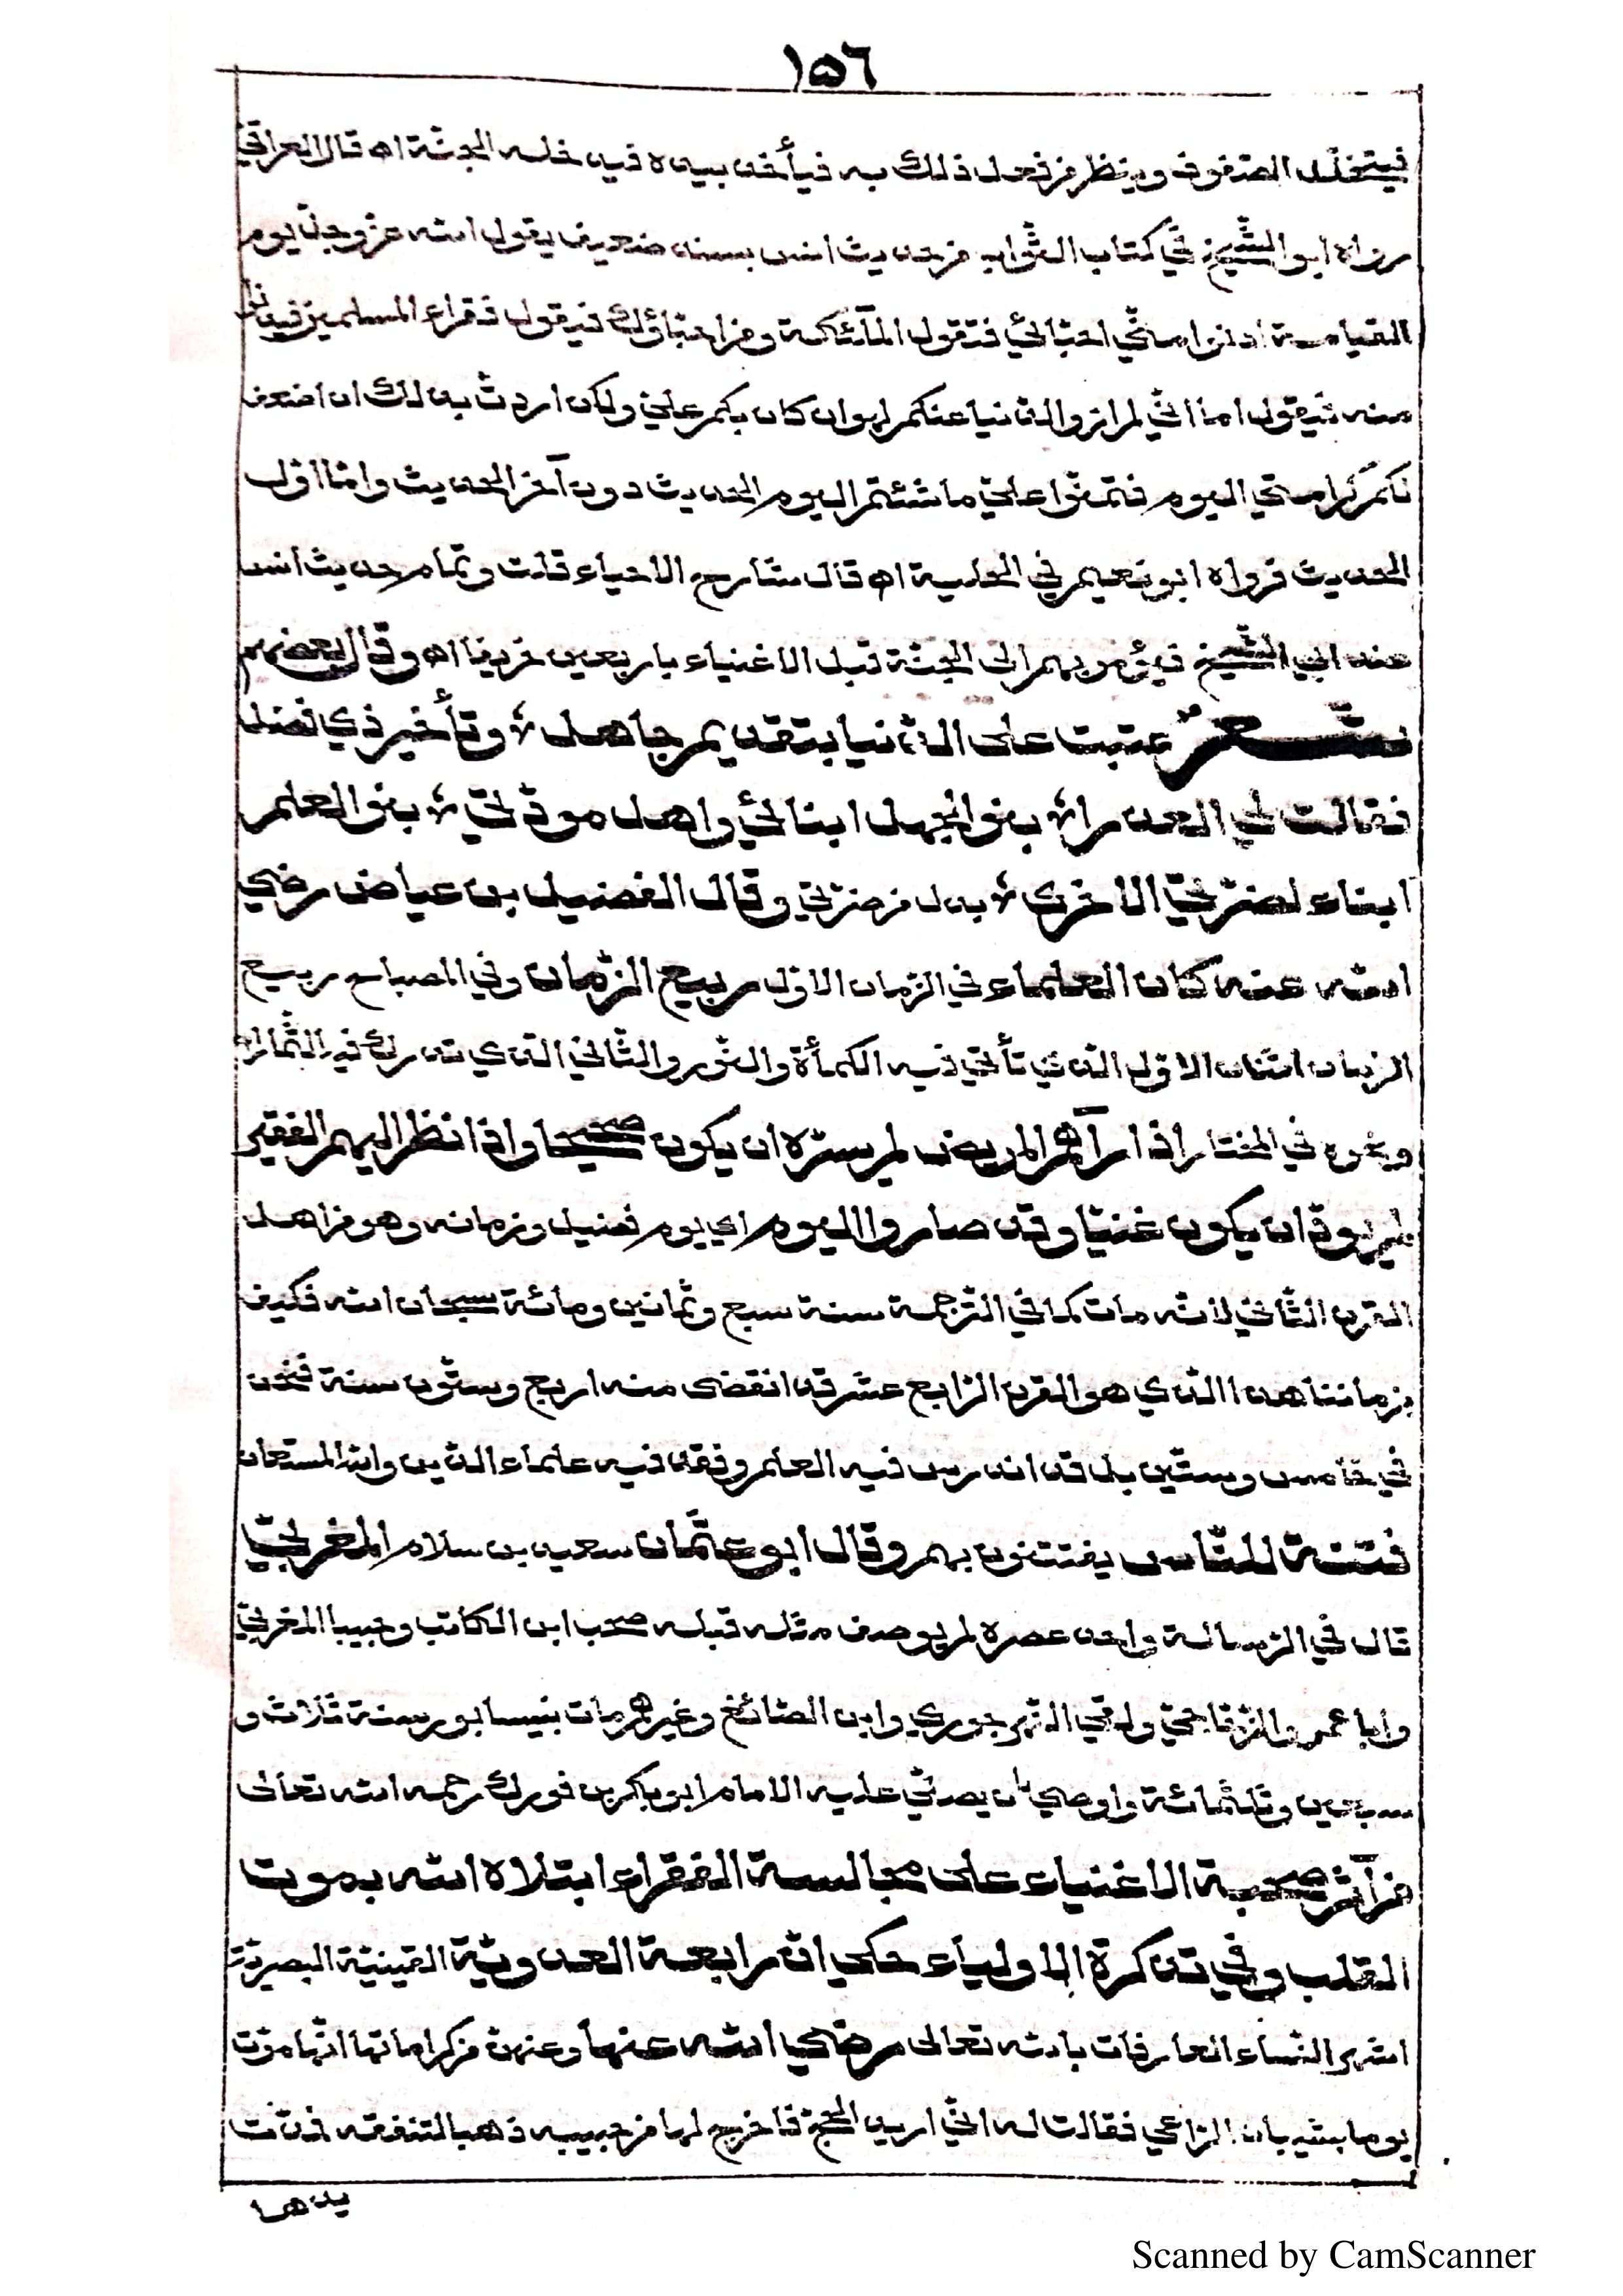 ١٥٦
فيتخلّل الصّفوف وينظر من فعل ذلك به فيأخذ بيده فيدخله الجنّة اه قال العراقيّ
رواه ابو الشّيخ في كتاب الثّواب من حديث انس بسند ضعيف يقول الله عزّوجلّ يوم
القيامة ادنوا منّي احبّائي فتقول الملآئكة ومن احبّاؤك فيقول فقراء المسلمين فيدنوا
منه فيقول اما انّي لم ازو الدّنيا عنكم لهوان كان بكم عليّ ولكن اردتّ بذلك ان اضعف
لكم كرامتي اليوم فتمنّوا عليّ ما شئتم اليوم الحديث دون آخر الحديث وامّا اوّل
الحديث فرواه ابو نعيم في الحلية اه قال شارح الاحياء قلت وتمام حديث انس
عند ابي الشّيخ فيؤمر بهم الى الجنّة قبل الاغنياء باربعين خريفا اه وقال بعضهم
شعرٌ عتبت على الدّنيا بتقديم جاهل ؛ وتأخير ذي فضل
فقالت لي العذرا ؛ بنو الجهل ابنائي واهل مودّتي ؛ بنو العلم
ابناء لضرّتي الاخرى ؛ بدل من ضرّتي وقال الفضيل بن عياض رضي
الله عنه كان العلماء في الزمان الاوّل ربيع الزّمان وفي المصباح ربيع
الزمان اثنان الاوّل الذي تأتي فيه الكمأة والنّور والثّاني الّذي تدرك فيه الثّمار اه
ونحوه في المختار اذا رآهم المريض لم يسرّه ان يكون صحيحا واذا نظر اليهم الفقير
لم يودّ ان يكون غنيّا وقد صاروا اليوم اي يوم فضيل وزمانه وهو من اهل
القرن الثّاني لانّه مات كما في التّرجمة سنة سبع وثمانين ومائة سبحان الله فكيف
بزماننا هذا الّذي هو القرن الرّابع عشر قد انقضى منه اربع وستّون سنة فنحن
في خامس وستّين بل قد اندرس فيه العلم وفقد فيه علماء الدّين والله المستعان
فتنة للنّاس يفتتنون بهم وقال ابو عثمان سعيد بن سلام المغربيّ
قال في الرّسالة واحد عصره لم يوصف مثله قبله صحب ابن الكاتب وحبيبا المغربيّ
وابا عمرو الزّجاجيّ ولقي النّهرجوري وابن الصّائغ وغيرهم مات بنيسابور سنة ثلاث و
سبعين وثلثمائة واوصى بان يصلّي عليه الامام ابو بكر بن فورك رحمه الله تعالى
من آثر صحبة الاغنياء على مجالسة الفقراء ابتلاه الله بموت
القلب وفي تذكرة الاولياء حكي انّ رابعة العدويّة القيسيّة البصريّة
اشهر النّساء العارفات بالله تعالى رضي الله عنها وعنهنّ من كراماتها انّها مرّت
يوما بشيبان الرّاعي فقالت له انّي اريد الحجّ فاخرج لها من جيبه ذهبا لتنفقه فمدّت
يدها
Scanned by CamScanner